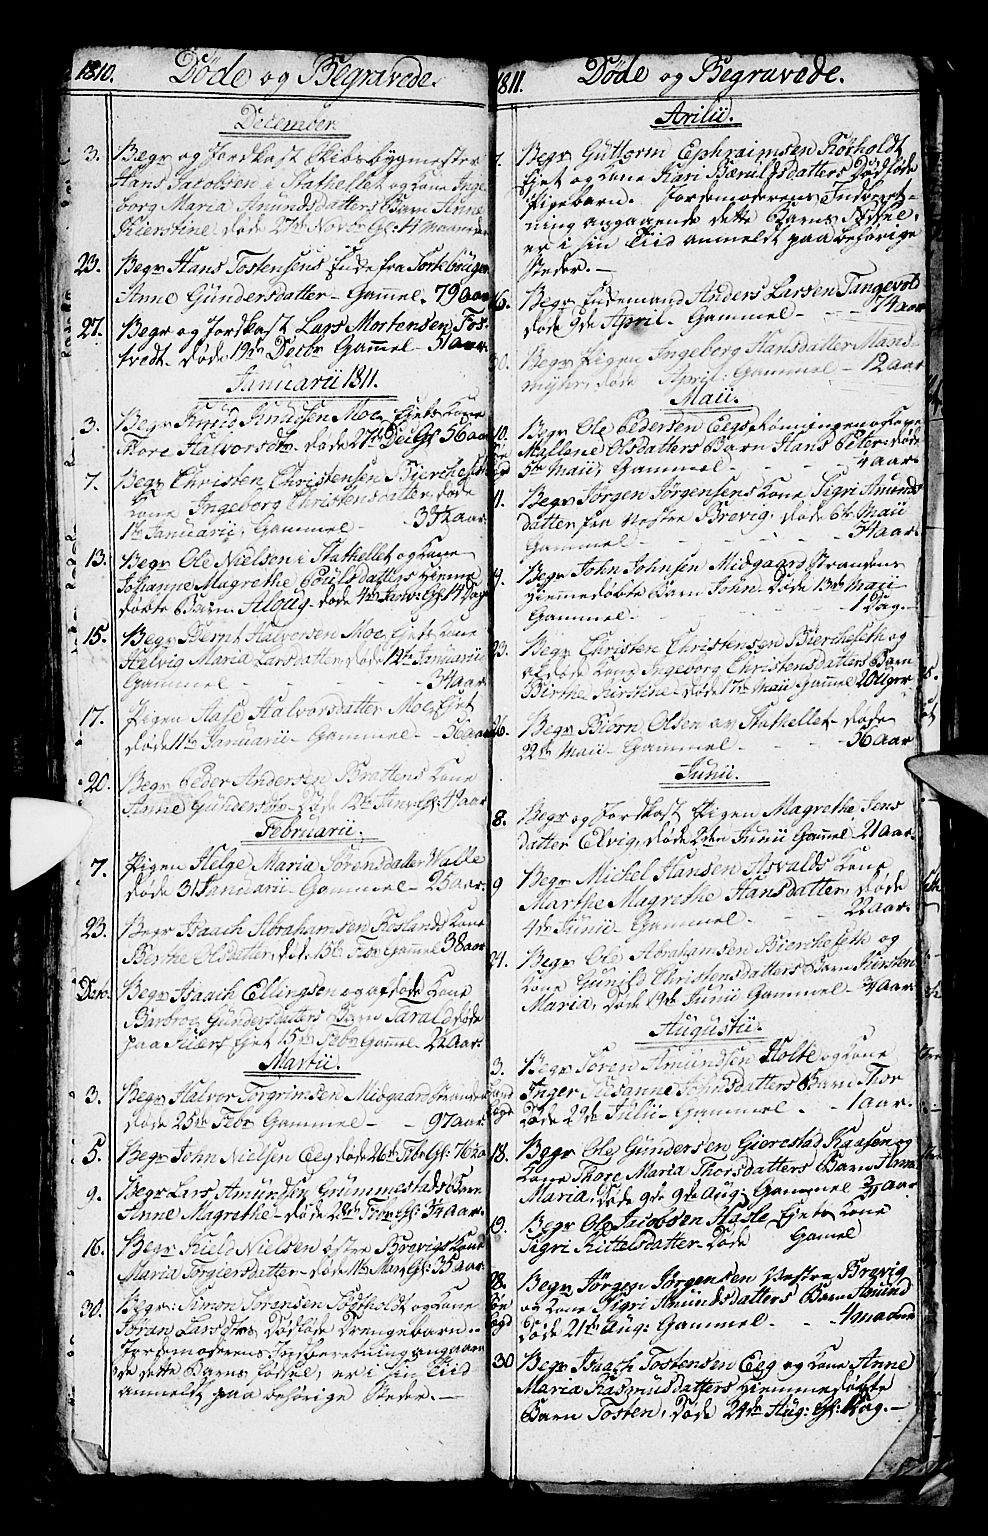 1810. Döde og Begravede.
December
3. Begr og Jordkast Skibsbygmester
Hans Jacobsen i Stathellet og Kone Inge
borg Maria Amundsdatters Barn Anne
Kierstine, döde 27de Novbr Gl: 4 Maaneder
23. Begr Hans Tostensens Enke fra
Anne Gündersdatter - Gamel. 79 aar
27. Begr og Jordkast Lars Mortensen Fos-
tvedt. døde 19de Decbr Gamel - 51 aar.
Januarii 1811.
3. Begr Knud Knudsen Moe, Ejets Kone
Thore Halvorsdtr døde 27de Dec Gl 56 aar
7. Begr Christen Christensen Bierckeseth
Kone Ingeborg Christensdatter, døde
1te Januarii, Gammel - 33½ aar.
13. Begr Ole Nielsen i Stathellet og Kone
Johanne Magrethe Poulsdatters hjemme
døbte Barn Aloug. døde 4de Janv: Gl. 14 Dage
15. Begr Bernt Halvorsen Moe, Ejets Kone
Helvig Maria Larsdatter, døde 12te Januarii
Gammel - - - - 34 aar
17. Pigen Aase Halvorsdatter Moe, Ejet
døde 11te Januarii - Gammel - 56 aar
20. Begr Peder Andersen Brattens Kone
Anne Gündersdtr døde 12te Janr Gl: 49 aar
Februarii.
7. Pigen Helge Maria Sørensdatter Valle
døde 31 Januarii - Gammel - 25 aar.
23. Begr Isaach Abrahamsen Røslands Kone
Berthe Olsdatter, døde 15de Febr Gammel 38 aar
Dito. Begr Isaach Ellingsen og afdøde Kone
Barbroe Gündersdatters Barn Tarald døde
paa Ejet 15de Febr Gamel - 22 aar.
Martii.
3. Begr Halvor Torgrimsen Midgaardstranden
døde 25de Febr Gammel - - 97 aar.
5. Begr John Nielsen Eeg døde 26de Febr Gl: 76 aar
9. Begr Lars Amundsen Grummestads Barn
Anne Magrethe - døde 28de Febr Gl: 3/4 aar.
16. Begr Kield Nielsen østre Brevigs Kone
Maria Torgiersdatter - døde 11te Mart Gl: 35 aar
30. Begr: Simon Sørensen Sogsholdt og Kone
Søran Lars dtrs Dødføde Drengebarn.
Jordemoderens Indberetning angaaen
de dette Barns Fødsel, er i sin Tiid
anmeldt paa behørige Steder. -
1811. Döde og Begravede.
Arilii.
7. Begr Guttorm Ephraimsen Røsholdt
Ejet og Kone Kari Bæruldsdatters Dødføde
Pigebarn. Jordemoderens Indberet-
ning angaaende dette Barns Fødsel,
er i sin Tiid anmeldt paa behørige
Steder. -
16. Begr Enkemand Anders Larsen Tangevold
døde 9de April - Gammel - - 74 aar
30. Begr Pigen Ingeborg Hansdatter Mans-
myhr, døde April: Gammel - 12 aar
Maii.
10. Begr Ole Pedersen Eegs Lønningen og Kone
Mallene Olsdatters Barn Hans Peter, døde
5te Maii, Gammel - - 4 aar.
11. Begr Jørgen Jørgensens Kone Sigri Amunds
datter fra Vestre Brevig, døde 6te Maii
Gammel - - - - 34 aar.
19. Begr John Johnsen Midgaardstrandens
hjemmedøbte Barn John, døde 13de Maii
Gammel - - - - 1 Dag. -
23. Begr Christen Christensen Bierckeseth og
afdøde Kone Ingeborg Christensdatters Barn
Birthe Kirstine - døde 17de Maii Gammel 20 Uger
26. Begr Biørn Olsen av Stathellet - døde
22de Maii - Gammel - - 36 aar
Junii.
8. Begr og Jordkast Pigen Magrethe Jens
datter Elvig, døde 2den Junii Gammel 21 aar.
9 Begr Michel Hansen Asvalds Kone
Marthe Magrethe Hansdatter, døde
4de Junii - Gammel - - 22 aar.
21. Begr Ole Abrahamsen Bierckeseth og
Kone Gunild Christensdatters Barn Kiersten
Maria, døde 19de Junii Gammel - aar.
Augustii.
3. Begr Søren Amundsen Holte og Kone
Inger Susanne Johnsdatters Barn Thor
døde 29de Julii - Gammel - - 1 aar.
18. Begr Ole Gündersen Gierestad Kaasen og
Kone Thore Maria Thorsdatters Barn Anne
Maria, døde 9de Aug: Gammel aar
19. Begr Ole Jacobsen Hasle, Ejets Kone
Sigri Kittelsdatter - døde Gamel
28. Begr Jørgen Jørgensen Vestre Brevig
og Kone Sigri Amundsdatters Barn Amund
døde 21de Aug: Gammel - - 4 maaneder
30 Begr Isaach Tostensen Eeg og Kone Anne
Maria Rasmusdatters hjemmedøbte
Barn Tosten, døde 24de Aug: Gl: 1 Dag. -